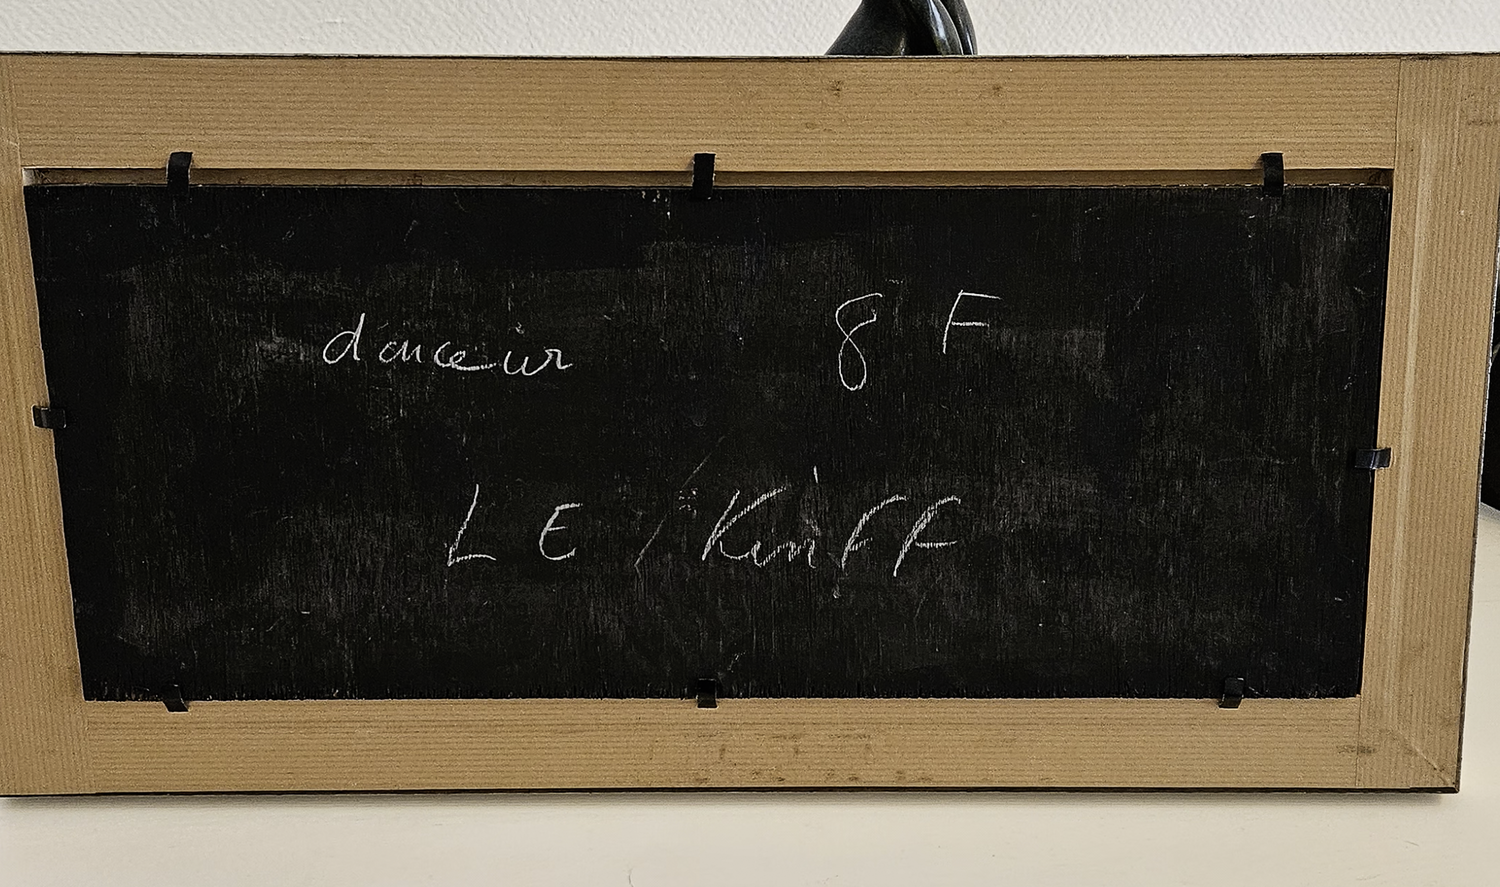 douceur 8 F
LE Kiniff